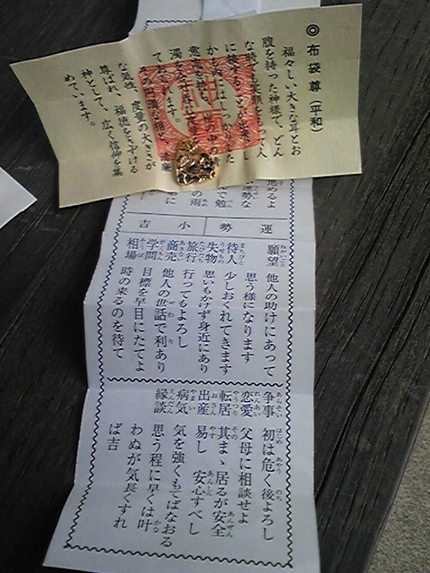 ◎布袋尊(平和)
福々しい大きな耳とお
腹を持った神様で、どん
な時でも笑顔をもって人
に接することが出来、し
かも内にはしっかりした
意志を持ち、世の中の清
ておられます。
な気風、度量の大きさが
尊ばれ、福徳をさずける
神として、広く信仰を集
めています。
運勢
小吉
願望 他人の助けにあって
思う様になります
待人 少しおくれてきます
失物 思いもかけず身近にあり
旅行 行ってもよろし
商売 他人の世話で利あり
学問 目標を早目にたてよ
相場 時の来るのを待て
争事 初は危く後よろし
恋愛 父母に相談せよ
転居 其まゝ居るが安全
出産 易し 安心すべし
病気 気を強くもてばなおる
縁談 思う程に早くは叶
わぬが気長くすれ
ば吉